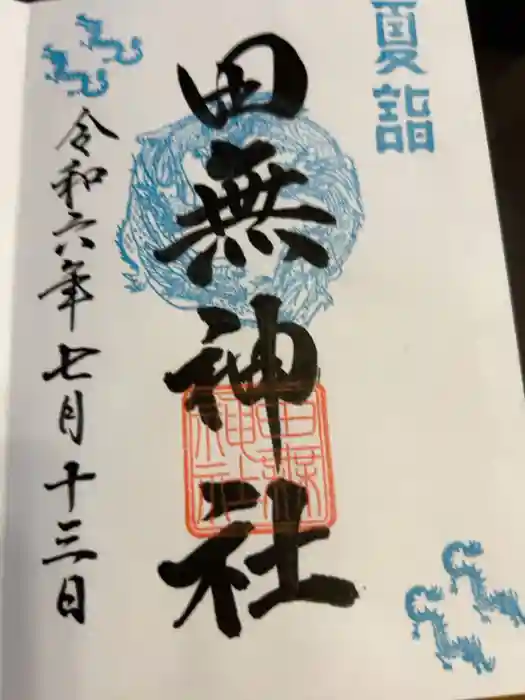 夏詣
田無神社
田無神社
令和六年七月十三日